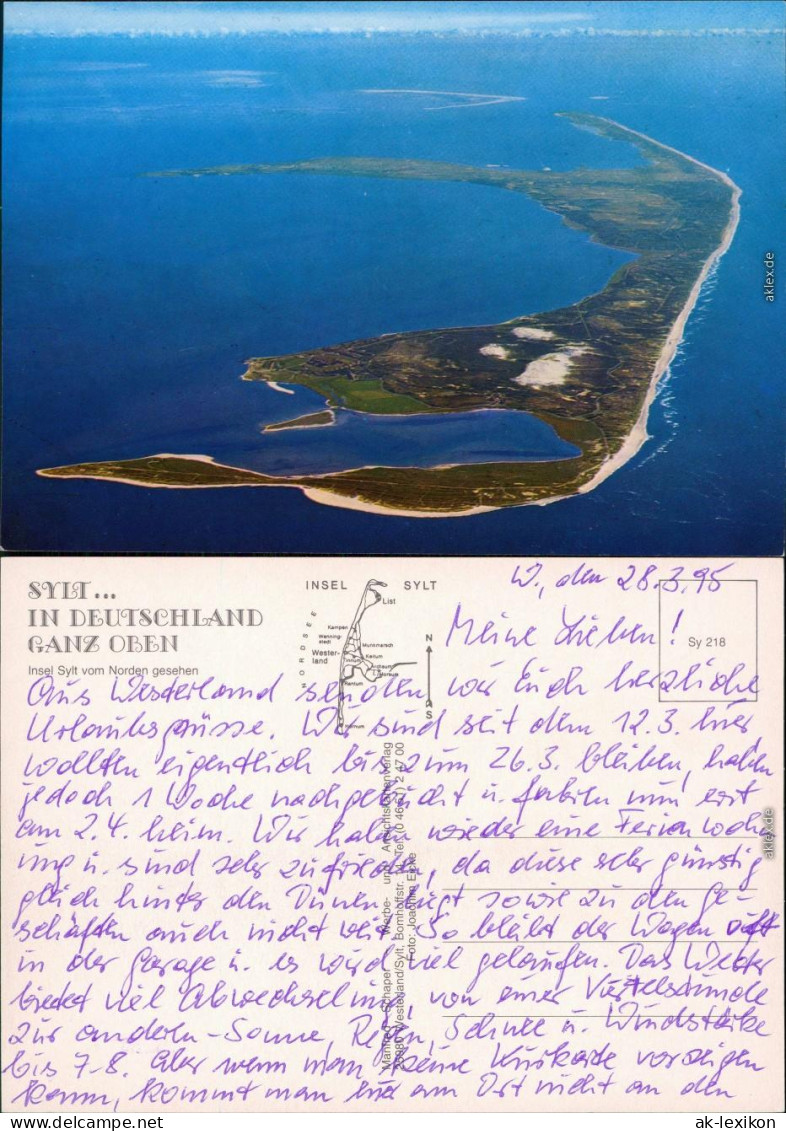 aklex.de
SYLT...
IN DEUTSCHLAND
GANZ OBEN
Insel Sylt vom Norden gesehen
INSEL SYLT
List
Kampen
Wenning-
stedt
Munkmarsch
Wester-
land
Keitum
Tinnum
Archsum
Morsum
Rantum
Hörnum
NORDSEE
N
S
Sy 218
W., den 28.3.95
Meine Lieben!
Aus Westerland senden wir Euch herzliche
Urlaubsgrüsse. Wir sind seit dem 12.3. hier
wollten eigentlich bis zum 26.3. bleiben, haben
jedoch 1 Woche nachgebucht u. fahren nun erst
am 2.4. heim. Wir haben wieder eine Ferienwohn
ung u. sind sehr zufrieden, da diese sehr günstig
gleich hinter den Dünen liegt sowie zu den Ge-
schäften auch nicht weit. So bleibt der Wagen oft
in der Garage u. es wird viel gelaufen. Das Wetter
bietet viel Abwechselung, von einer Viertelstunde
zur anderen - Sonne, Regen, Schnee u. Windstärke
bis 7-8. Aber wenn man keine Kurkarte vorzeigen
kann, kommt man hier am Ort nicht an den
Manfred Schaper Werbe- und Ansichtskartenverlag
Westerland/Sylt, Bomhoffstr.
Foto: Joachim Eicke
aklex.de
© Copyright
ak-lexikon